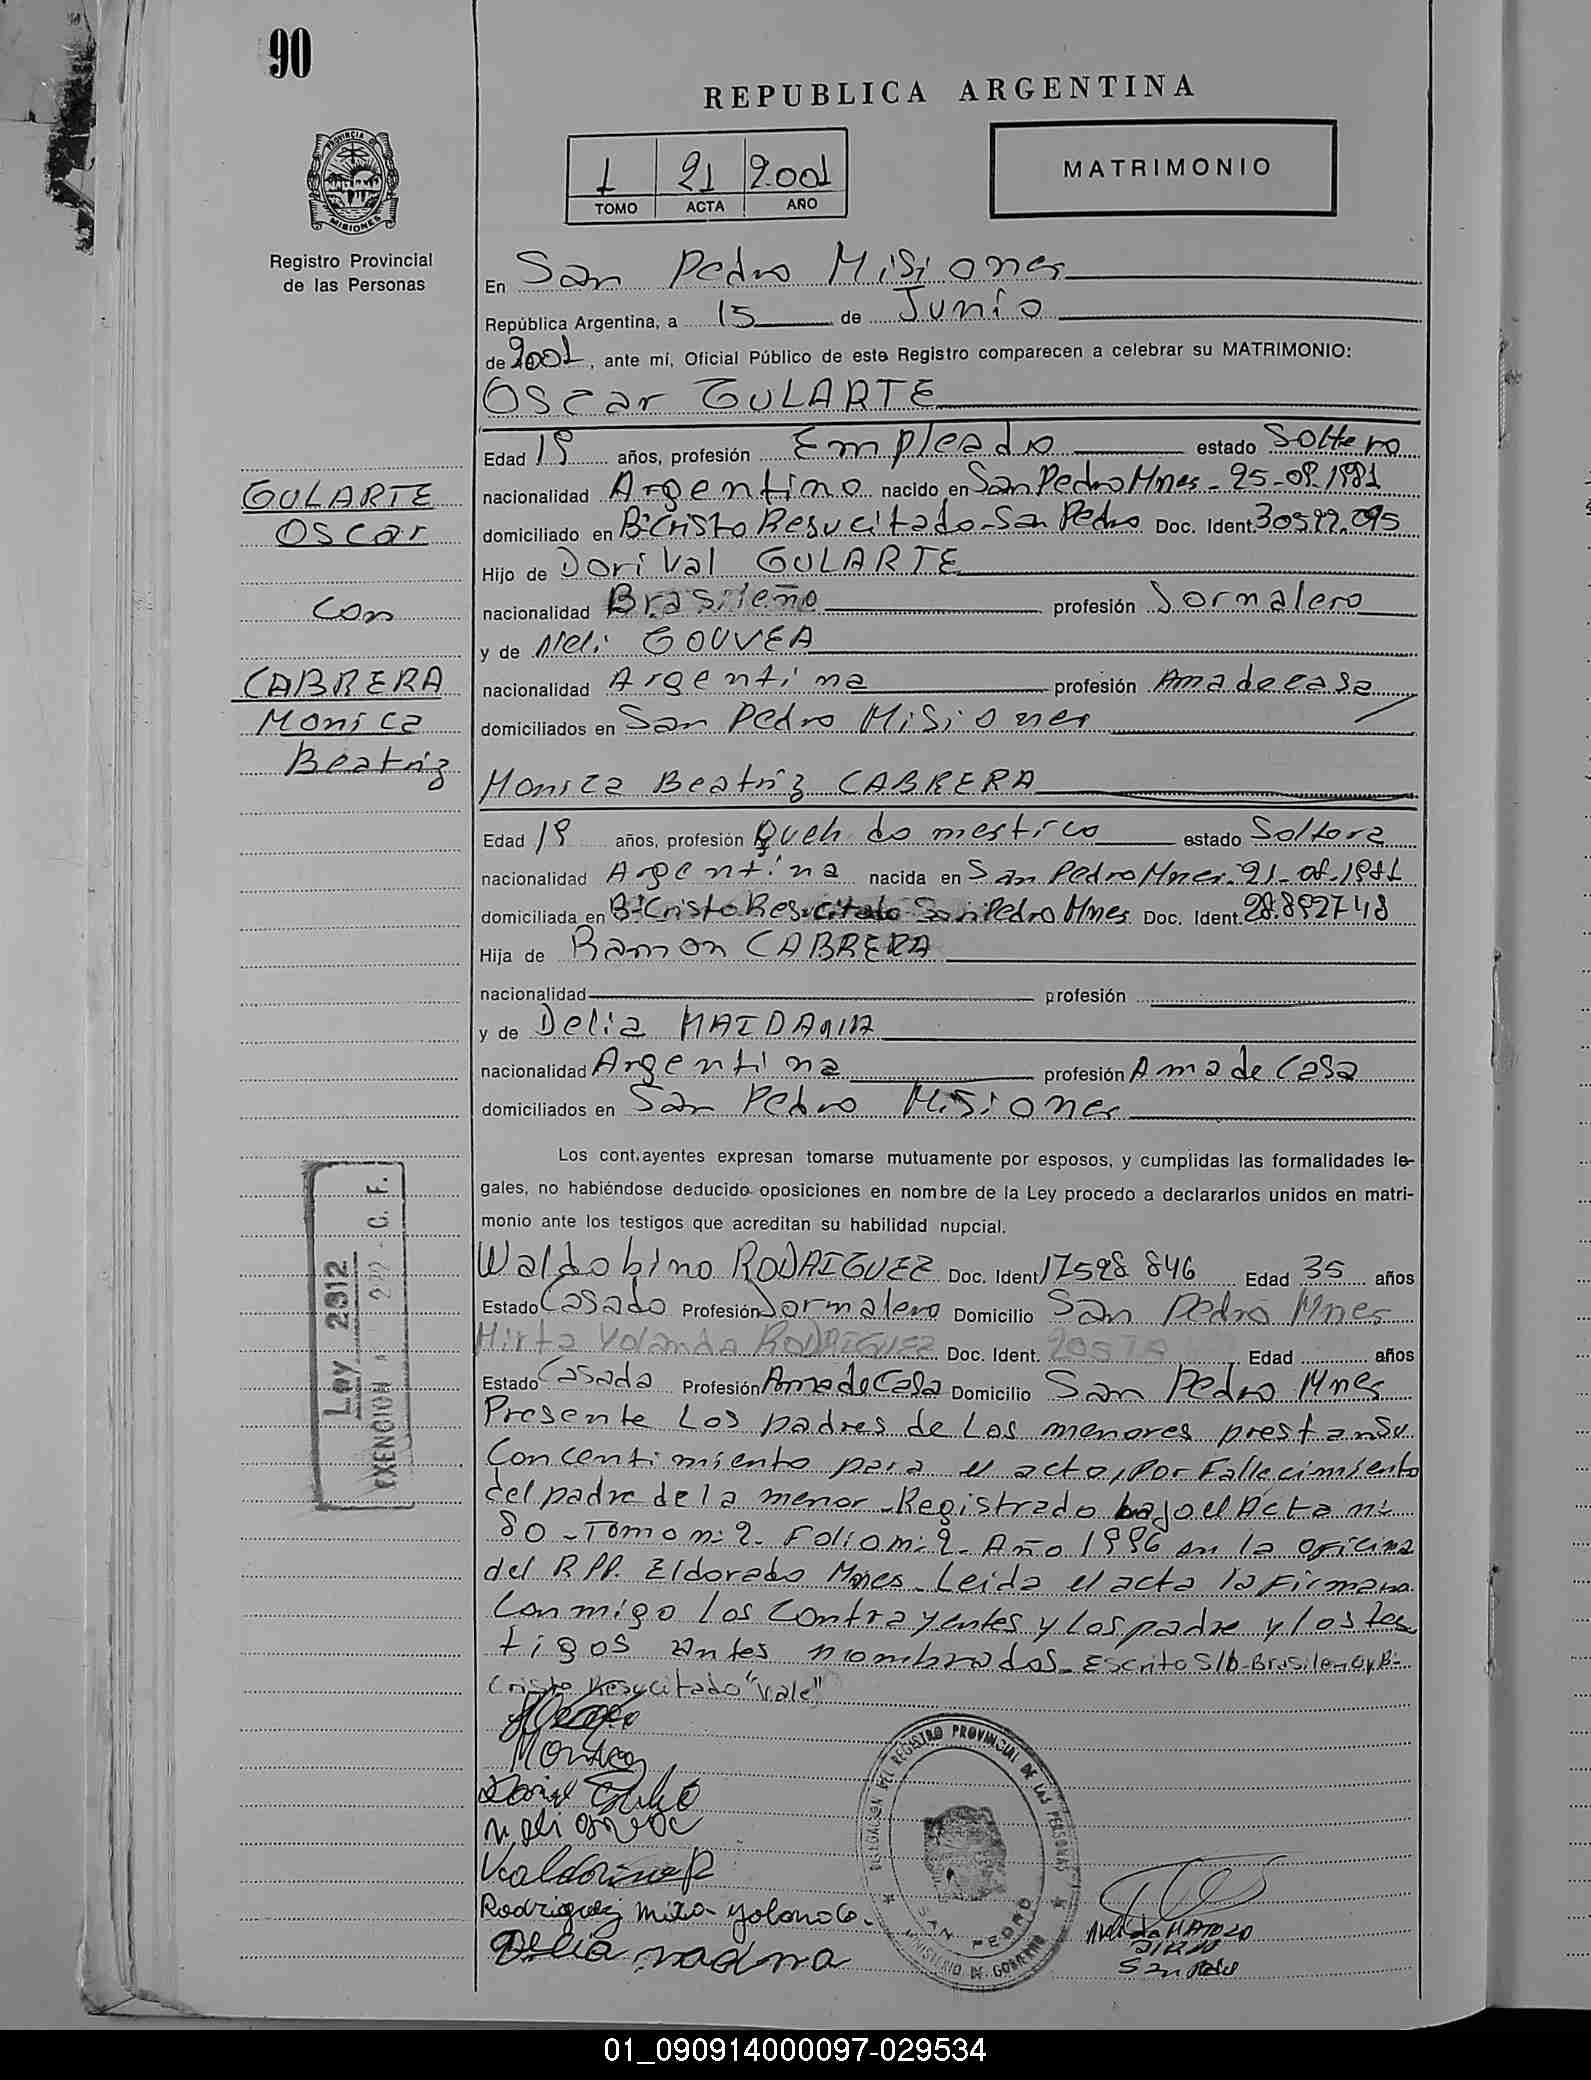 90
REPUBLICA ARGENTINA
1 21 2001
TOMO ACTA AÑO
MATRIMONIO
PROVINCIA D MISIONES
Registro Provincial
de las Personas
En San Pedro Misiones
República Argentina, a 15 de Junio
de 2001, ante mí, Oficial Público de este Registro comparecen a celebrar su MATRIMONIO:
Oscar GULARTE
Edad 19 años, profesión Empleado estado Soltero
nacionalidad Argentino nacido en San Pedro Mnes - 25-08-1981
domiciliado en Bº Cristo Resucitado - San Pedro Doc. Ident.
Hijo de Dorival GULARTE
nacionalidad Brasileño profesión Jornalero
y de Neli GOUVEA
nacionalidad Argentina profesión Ama de casa
domiciliados en San Pedro Misiones
GULARTE
Oscar
con
CABRERA
Monica
Beatriz
Monica Beatriz CABRERA
Edad 19 años, profesión Queh domestico estado Soltera
nacionalidad Argentina nacida en San Pedro Mnes. 21-08-1981
domiciliada en Bº Cristo Resucitado San Pedro Mnes. Doc. Ident. 28.892748
Hija de Ramon CABRERA
nacionalidad profesión
y de Delia MAIDANA
nacionalidad Argentina profesión Ama de Casa
domiciliados en San Pedro Misiones
Los cont.ayentes expresan tomarse mutuamente por esposos, y cumplidas las formalidades le-
gales, no habiéndose deducido oposiciones en nombre de la Ley procedo a declararlos unidos en matri-
monio ante los testigos que acreditan su habilidad nupcial.
Ley 2312
EXENCION A C. F.
Waldobino RODRIGUEZ Doc. Ident 17598 846 Edad 35 años
Estado Casado Profesión Jornalero Domicilio San Pedro Mnes
Mirta Yolanda RODRIGUEZ Doc. Ident. Edad años
Estado Casada Profesión Ama de Casa Domicilio San Pedro Mnes
Presente Los padres de Los menores prestan su
Concentimiento para el acto, Por Fallecimiento
del padre de la menor - Registrado bajo el Acta nº
80 - Tomo nº 2 - Folio nº 2 - Año 1996 en la oficina
del R.P.P. Eldorado Mnes - Leida el acta la Firman
Conmigo los Contrayentes y los padre y los tes
tigos antes nombrados - Escrito S/b - Brasileño y Bº
Cristo Resucitado "vale"
Monica
Rodriguez mirta yolanda
DELEGACION DEL REGISTRO PROVINCIAL DE LAS PERSONAS
SAN PEDRO
MINISTERIO DE GOBIERNO
San Pedro
01_090914000097-029534